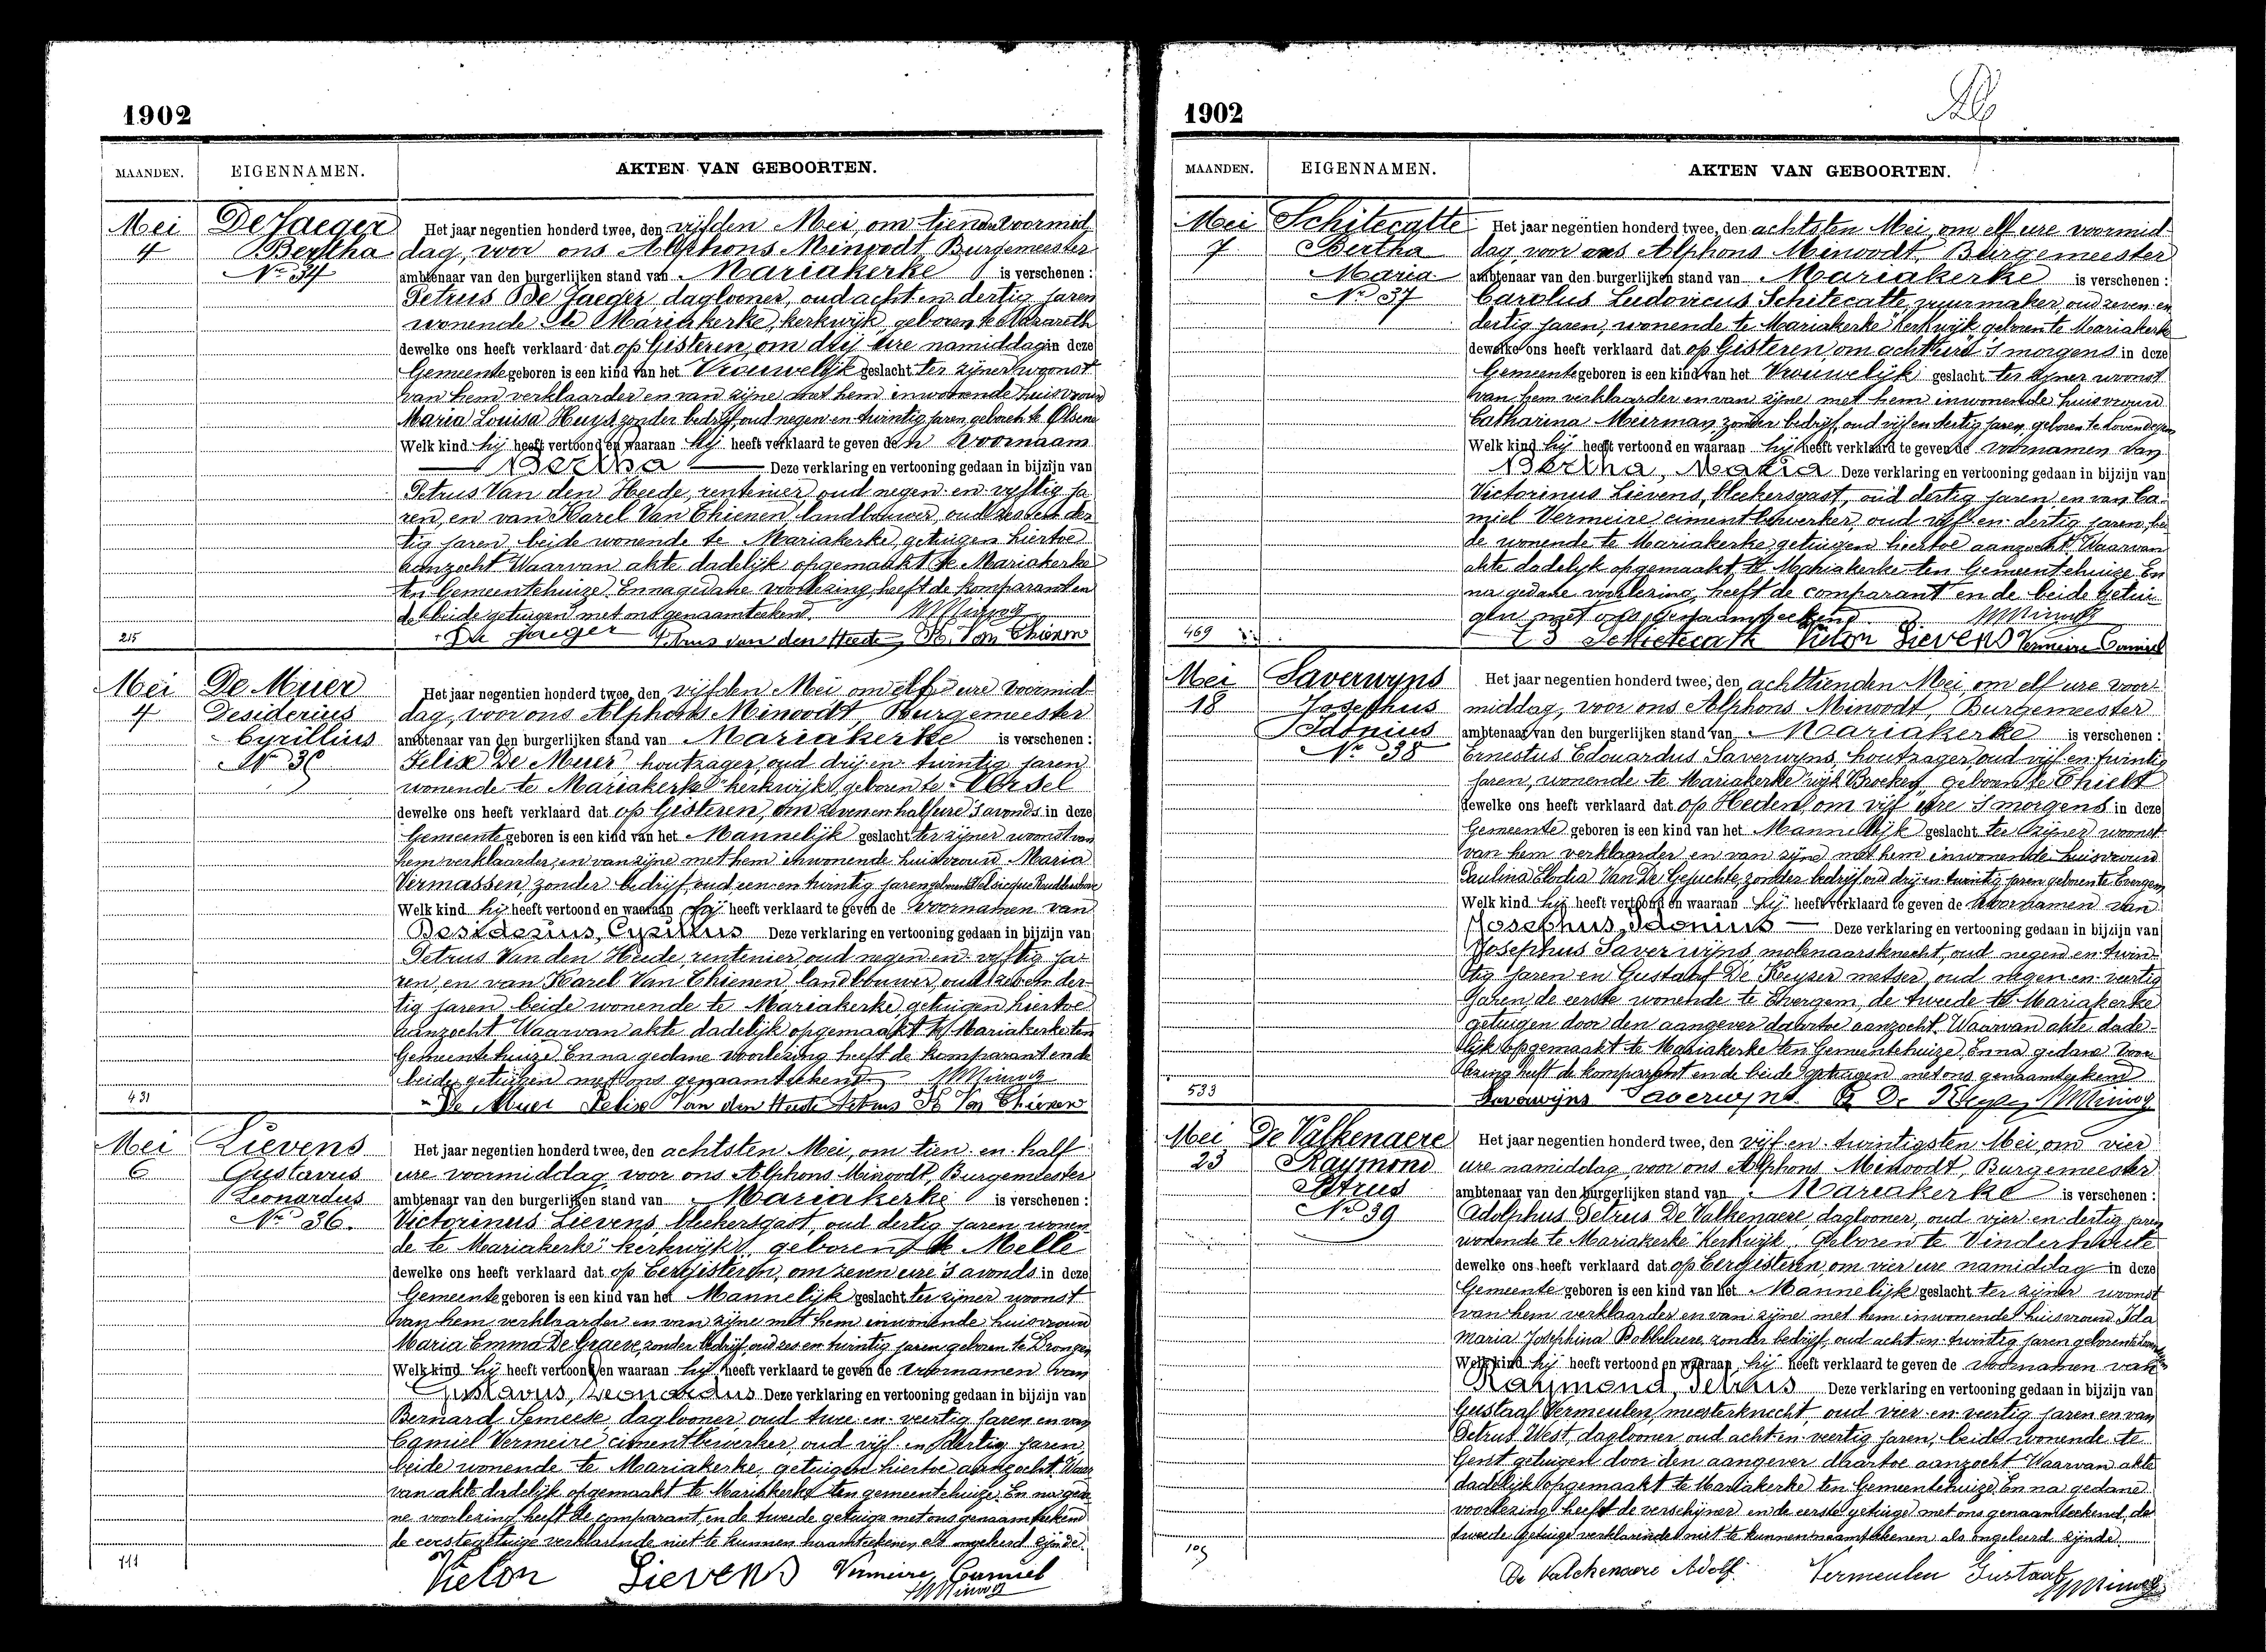 1902
MAANDEN. EIGENNAMEN. AKTEN VAN GEBOORTEN.
Mei
4
De Jaeger
Bertha
No 34
215
Het jaar negentien honderd twee, den vijfden Mei, om tien ure voormid-
dag, voor ons Alphons Minoodt, Burgemeester
ambtenaar van den burgerlijken stand van Mariakerke is verschenen :
Petrus De Jaeger, dagloner, oud acht en dertig jaren
wonende te Mariakerke, kerkwijk, geboren te Nazareth
dewelke ons heeft verklaard dat op Gisteren, om drij ure namiddag in deze
Gemeente geboren is een kind van het Vrouwelijk geslacht ter zijner woonst
van hem verklaarder en van zijne met hem inwonende huisvrouw
Maria Louisa Huys zonder bedrijf, oud negen en twintig jaren, geboren te Olsene
Welk kind hij heeft vertoond en waaraan hij heeft verklaard te geven den voornaam
Bertha Deze verklaring en vertooning gedaan in bijzijn van
Petrus Van den Heede, rentenier, oud negen en vijftig ja-
ren, en van Karel Van Thienen, landbouwer, oud zes en der-
tig jaren, beide wonende te Mariakerke, getuigen hiertoe
aanzocht Waarvan akte dadelijk opgemaakt te Mariakerke
ten Gemeentehuize. En na gedane voorlezing heeft de komparant en
de beide getuigen met ons genaamteekend.
De Jaeger Petrus van den Heede, K. Van Thienen
Mei
4
De Muer
Desiderius
Cyrillius
431
Het jaar negentien honderd twee, den vijfden Mei om elf ure voormid-
dag, voor ons Alphons Minoodt, Burgemeester
ambtenaar van den burgerlijken stand van Mariakerke is verschenen :
Felix De Muer houtzager, oud drij en twintig jaren
wonende te Mariakerke "kerkwijk" geboren te Ursel
dewelke ons heeft verklaard dat op Gisteren, om zeven en half ure 's avonds in deze
Gemeente geboren is een kind van het Mannelijk geslacht ter zijner woonst van
hem verklaarder, en van zijne met hem inwonende huisvrouw Maria
Vermassen, zonder bedrijf, oud een en twintig jaren geboren te
Welk kind hij heeft vertoond en waaraan hij heeft verklaard te geven de voornamen van
Desiderius, Cyrillius Deze verklaring en vertooning gedaan in bijzijn van
Petrus Van den Heede, rentenier, oud negen en vijftig ja-
ren, en van Karel Van Thienen, landbouwer, oud zes en der-
tig jaren beide wonende te Mariakerke, getuigen hiertoe
aanzocht Waarvan akte dadelijk opgemaakt te Mariakerke ten
Gemeentehuize. En na gedane voorlezing heeft de komparant en de
beide getuigen met ons genaamteekend
De Muer Felix Van den Heede Petrus K Van Thienen
Mei
6
Lievens
Gustavus
Leonardus
No 36.
711
Het jaar negentien honderd twee, den achtsten Mei, om tien en half
ure voormiddag voor ons Alphons Minoodt, Burgemeester
ambtenaar van den burgerlijken stand van Mariakerke is verschenen :
Victorinus Lievens, bleekersgast, oud dertig jaren wonen-
de te Mariakerke "kerkwijk" geboren te Melle
dewelke ons heeft verklaard dat op Eergisteren, om zeven ure 's avonds in deze
Gemeente geboren is een kind van het Mannelijk geslacht ter zijner woonst
van hem verklaarder en van zijne met hem inwonende huisvrouw
Maria Emma De Graeve, zonder bedrijf, oud zes en twintig jaren geboren te Drongen
Welk kind hij heeft vertoond en waaraan hij heeft verklaard te geven de voornamen van
Gustavus, Leonardus Deze verklaring en vertooning gedaan in bijzijn van
Bernard Semeese, dagloner, oud twee en veertig jaren en van
Camiel Vermeire cimentbewerker, oud vijf en dertig jaren
beide wonende te Mariakerke, getuigen hiertoe aanzocht. Waar-
van akte dadelijk opgemaakt te Mariakerke ten gemeentehuize. En na geda-
ne voorlezing heeft de comparant en de tweede getuige met ons genaamteekend
de eerste getuige verklarende niet te kunnen naamteekenen als ongeleerd zijnde.
Victor Lievens Vermeire Camiel
1902
MAANDEN. EIGENNAMEN. AKTEN VAN GEBOORTEN.
Mei
7
Schitecatte
Bertha
Maria
No 37
469
Het jaar negentien honderd twee, den achtsten Mei, om elf ure voormid-
dag voor ons Alphons Minoodt, Burgemeester
ambtenaar van den burgerlijken stand van Mariakerke is verschenen :
Carolus Ludovicus Schitecatte, vuurmaker oud zeven en
dertig jaren, wonende te Mariakerke "kerkwijk geboren te Mariakerke
dewelke ons heeft verklaard dat op Gisteren, om acht ure 's morgens in deze
Gemeente geboren is een kind van het Vrouwelijk geslacht ter zijner woonst
van hem verklaarder en van zijne met hem inwonende huisvrouw
Catharina Meirman, zonder bedrijf, oud vijf en dertig jaren, geboren te Lovendegem
Welk kind hij heeft vertoond en waaraan hij heeft verklaard te geven de voornamen van
Bertha, Maria Deze verklaring en vertooning gedaan in bijzijn van
Victorinus Lievens, bleekersgast, oud dertig jaren en van Ca-
miel Vermeire cimentbewerker, oud vijf en dertig jaren, bei-
de wonende te Mariakerke getuigen hiertoe aanzocht. Waarvan
akte dadelijk opgemaakt te Mariakerke ten Gemeentehuize En
na gedane voorlezing, heeft de comparant en de beide getui-
gen met ons genaamteekend.
Victor Lievens Vermeire Camiel
Mei
18
Saverwyns
Josephus
Idonius
No 38
533
Het jaar negentien honderd twee, den achttienden Mei, om elf ure voor-
middag, voor ons Alphons Minoodt, Burgemeester
ambtenaar van den burgerlijken stand van Mariakerke is verschenen :
Ernestus Edouardus Saverwyns, houtzager, oud vijf en twintig
jaren, wonende te Mariakerke wijk "Brocken" geboren te Thielt
dewelke ons heeft verklaard dat op Heden, om vijf ure 's morgens in deze
Gemeente geboren is een kind van het Mannelijk geslacht ter zijner woonst
van hem verklaarder en van zijne met hem inwonende huisvrouw
Paulina Elodia Van De Gejuchte, zonder bedrijf oud drij en twintig jaren geboren te Evergem
Welk kind hij heeft vertoond en waaraan hij heeft verklaard te geven de voornamen van
Josephus, Idonius Deze verklaring en vertooning gedaan in bijzijn van
Josephus Saverwyns, molenaarsknecht, oud negen en twin-
tig jaren en Gustaaf De Keyser metser, oud negen en veertig
jaren, de eerste wonende te Evergem, de tweede te Mariakerke
getuigen door den aangever daartoe aanzocht. Waarvan akte dade-
lijk opgemaakt te Mariakerke ten Gemeentehuize. En na gedane voor-
lezing heeft de komparant en de beide getuigen met ons genaamteekend
Saverwyns G De Keyser
Mei
23
De Valkenaere
Raymond
Petrus
No 39
109
Het jaar negentien honderd twee, den vijf en twintigsten Mei, om vier
ure namiddag voor ons Alphons Minoodt, Burgemeester
ambtenaar van den burgerlijken stand van Mariakerke is verschenen :
Adolphus Petrus De Valkenaere, dagloner, oud vier en dertig jaren
wonende te Mariakerke "Kerkwijk" Geboren te Vinderhoute
dewelke ons heeft verklaard dat op Eergisteren, om vier ure namiddag in deze
Gemeente geboren is een kind van het Mannelijk geslacht ter zijner woonst
van hem verklaarder en van zijne met hem inwonende huisvrouw Ida
Maria Josephina Bobbelaere, zonder bedrijf, oud acht en twintig jaren geboren te
Welk kind hij heeft vertoond en waaraan hij heeft verklaard te geven de voornamen van
Raymond, Petrus Deze verklaring en vertooning gedaan in bijzijn van
Gustaaf Vermeulen, meesterknecht, oud vier en veertig jaren en van
Petrus West, dagloner oud acht en veertig jaren, beide wonende te
Gent getuigen door den aangever daartoe aanzocht Waarvan akte
dadelijk opgemaakt te Mariakerke ten Gemeentehuize. En na gedane
voorlezing heeft de verschijner en de eerste getuige met ons genaamteekend, de
tweede getuige verklarende niet te kunnen naamteekenen als ongeleerd zijnde
De Valckenaere Adolf. Vermeulen Gustaaf